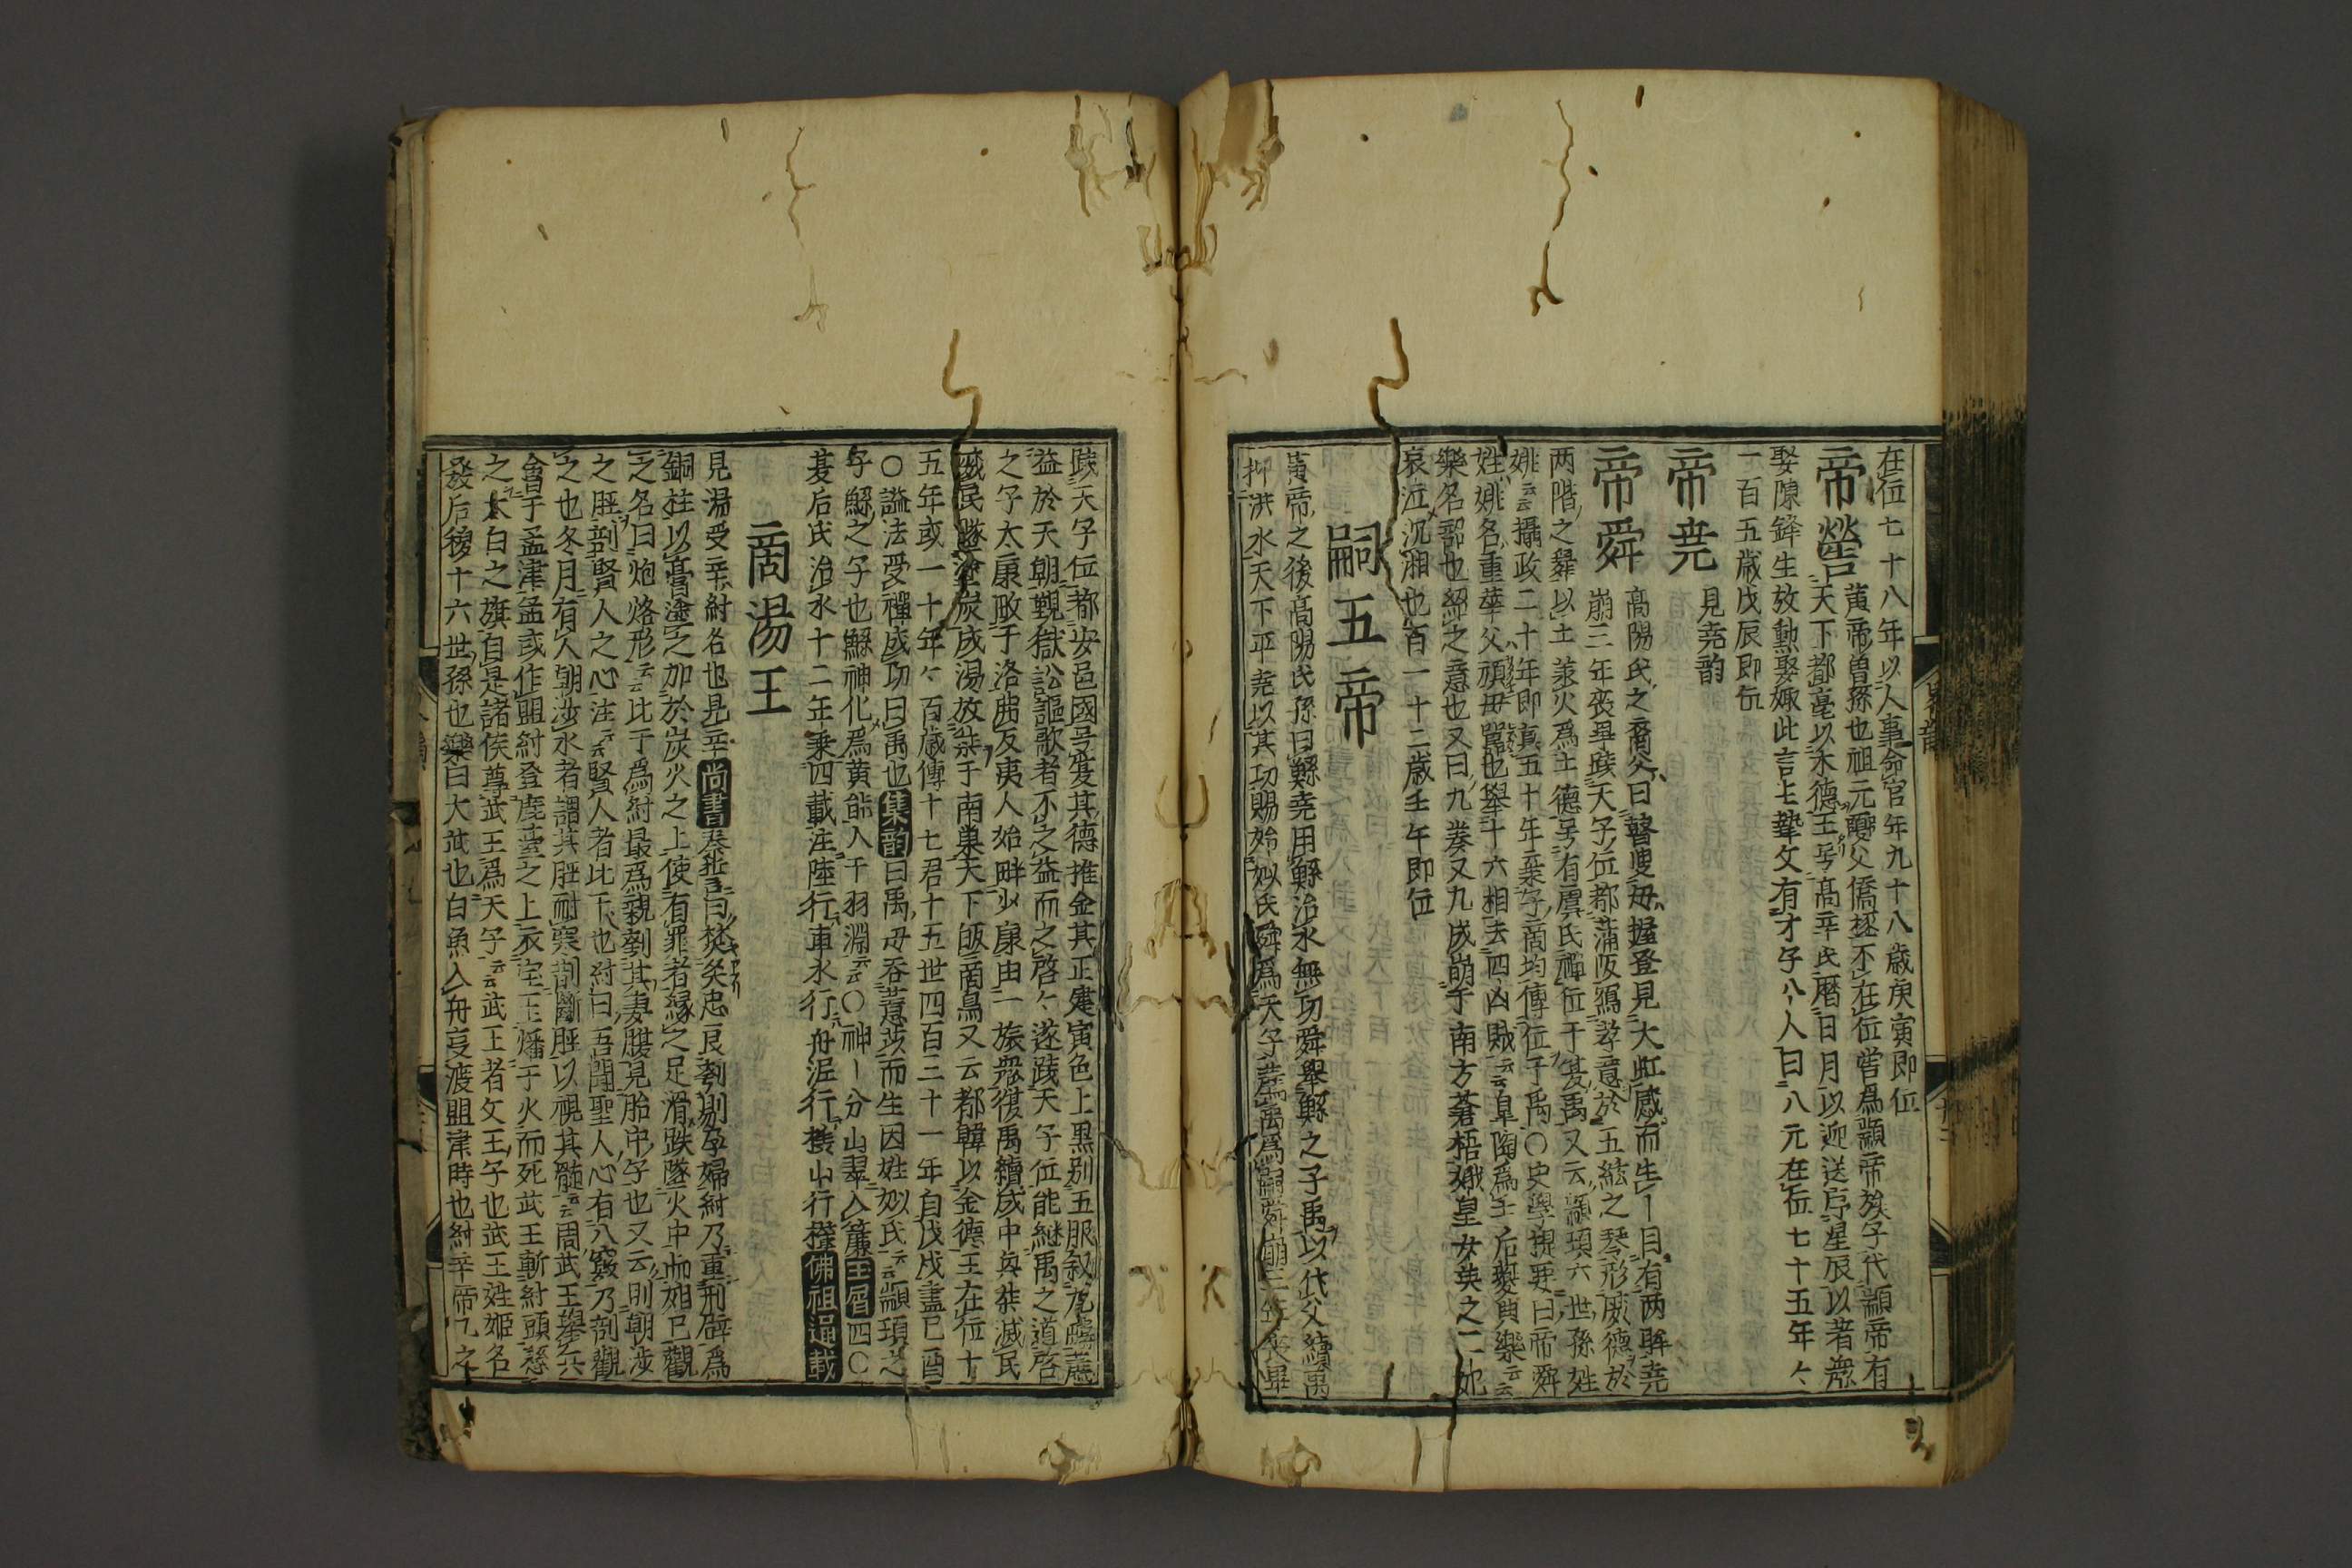 在位七十八年以人事命官年九十八歳庚寅即位
帝嚳
黄帝曽孫也祖元囂父僑極不在位嘗爲顓帝族子代顓帝有
天下都亳以木德王号高辛氏暦日月以迎送序星辰以著衆
娶陳鋒生放勲娶娵此言七摯文有才子八人曰八元在位七十五年々
一百五歳戊辰即位
帝尭
見尭韵
帝舜
高陽氏之裔父曰瞽叟毋握登見大虹感而生丨目有両眸尭
崩三年喪畢踐天子位都蒲阪爲孝意於五絃之琴形威德於
両階之舞以土羕火爲土德号有虞氏禅位于夏禹又云顓頊六世孫姓
姚云云攝政二十年即真五十年乗子商均傳位于禹〇史學提要曰帝舜
姓姚名重華父頑毋嚚也舉十六相去四凶賊云云皐陶爲士后夔典樂云云
樂名韶也紹之意也又曰九奏又九成崩于南方蒼梧娥皇女英之二妃
哀泣沉湘也百一十二歳壬午即位
嗣五帝
黄帝之後高陽氏孫曰鯀尭用鯀治水無功舜舉鯀之子禹以代父續禹
抑洪水天下平尭以其功賜姓姒氏舜爲天子薦禹爲嗣舜崩三年喪畢
踐天子位都安邑國号夏其德推金其正建寅色上黒別五服叙九疇薦
益於天朝覲獄訟謳歌者不之益而之啓々遂踐天子位能継禹之道啓
之子太康畋于洛曲反夷人始畔少康由一旅衆復禹績成中興桀滅民
民墜塗炭成湯放桀于南巣天下皈商焉又云都韓以金德王在位十
五年或一十年々百歳傳十七君十五世四百三十一年自戊戌盡己酉
〇謚法受禪成功曰禹也集韵曰禹毋吞薏苡而生因姓姒氏云云顓頊之
子鯀之子也鯀神化爲黄能入于羽淵云云〇神丨分山翠入簾玉屑四〇
夏后氏治水十二年乗四載注陸行車水行舟泥行橇山行檋佛祖通載
商湯王
見湯受辛紂名也見辛尚書泰誓上曰焚炙忠良刳剔孕婦紂乃重刑辟爲
銅柱以膏塗之加於炭火之上使有罪者縁之足滑跌墜火中妲妲已觀
之名曰炮烙形云云比干爲紂最爲親刳其妻腹見胎中子也又云則朝渉
之脛剖賢人之心注云賢人者比干也紂曰吾聞聖人心有八竅乃剖觀
之也冬月有人朝渉水者謂其脛耐寒削斷脛以視其髄云云周武王舉六
會于孟津孟或作盟紂登鹿臺之上衣宝玉燔于火而死武王斬紂頭懸
之太白之旗自是諸侯尊武王爲天子云云武王者文王子也武王姓姬名
發后稷十六世孫也樂曰大武也白魚入舟亨渡盟津時也紂辛帝乙之